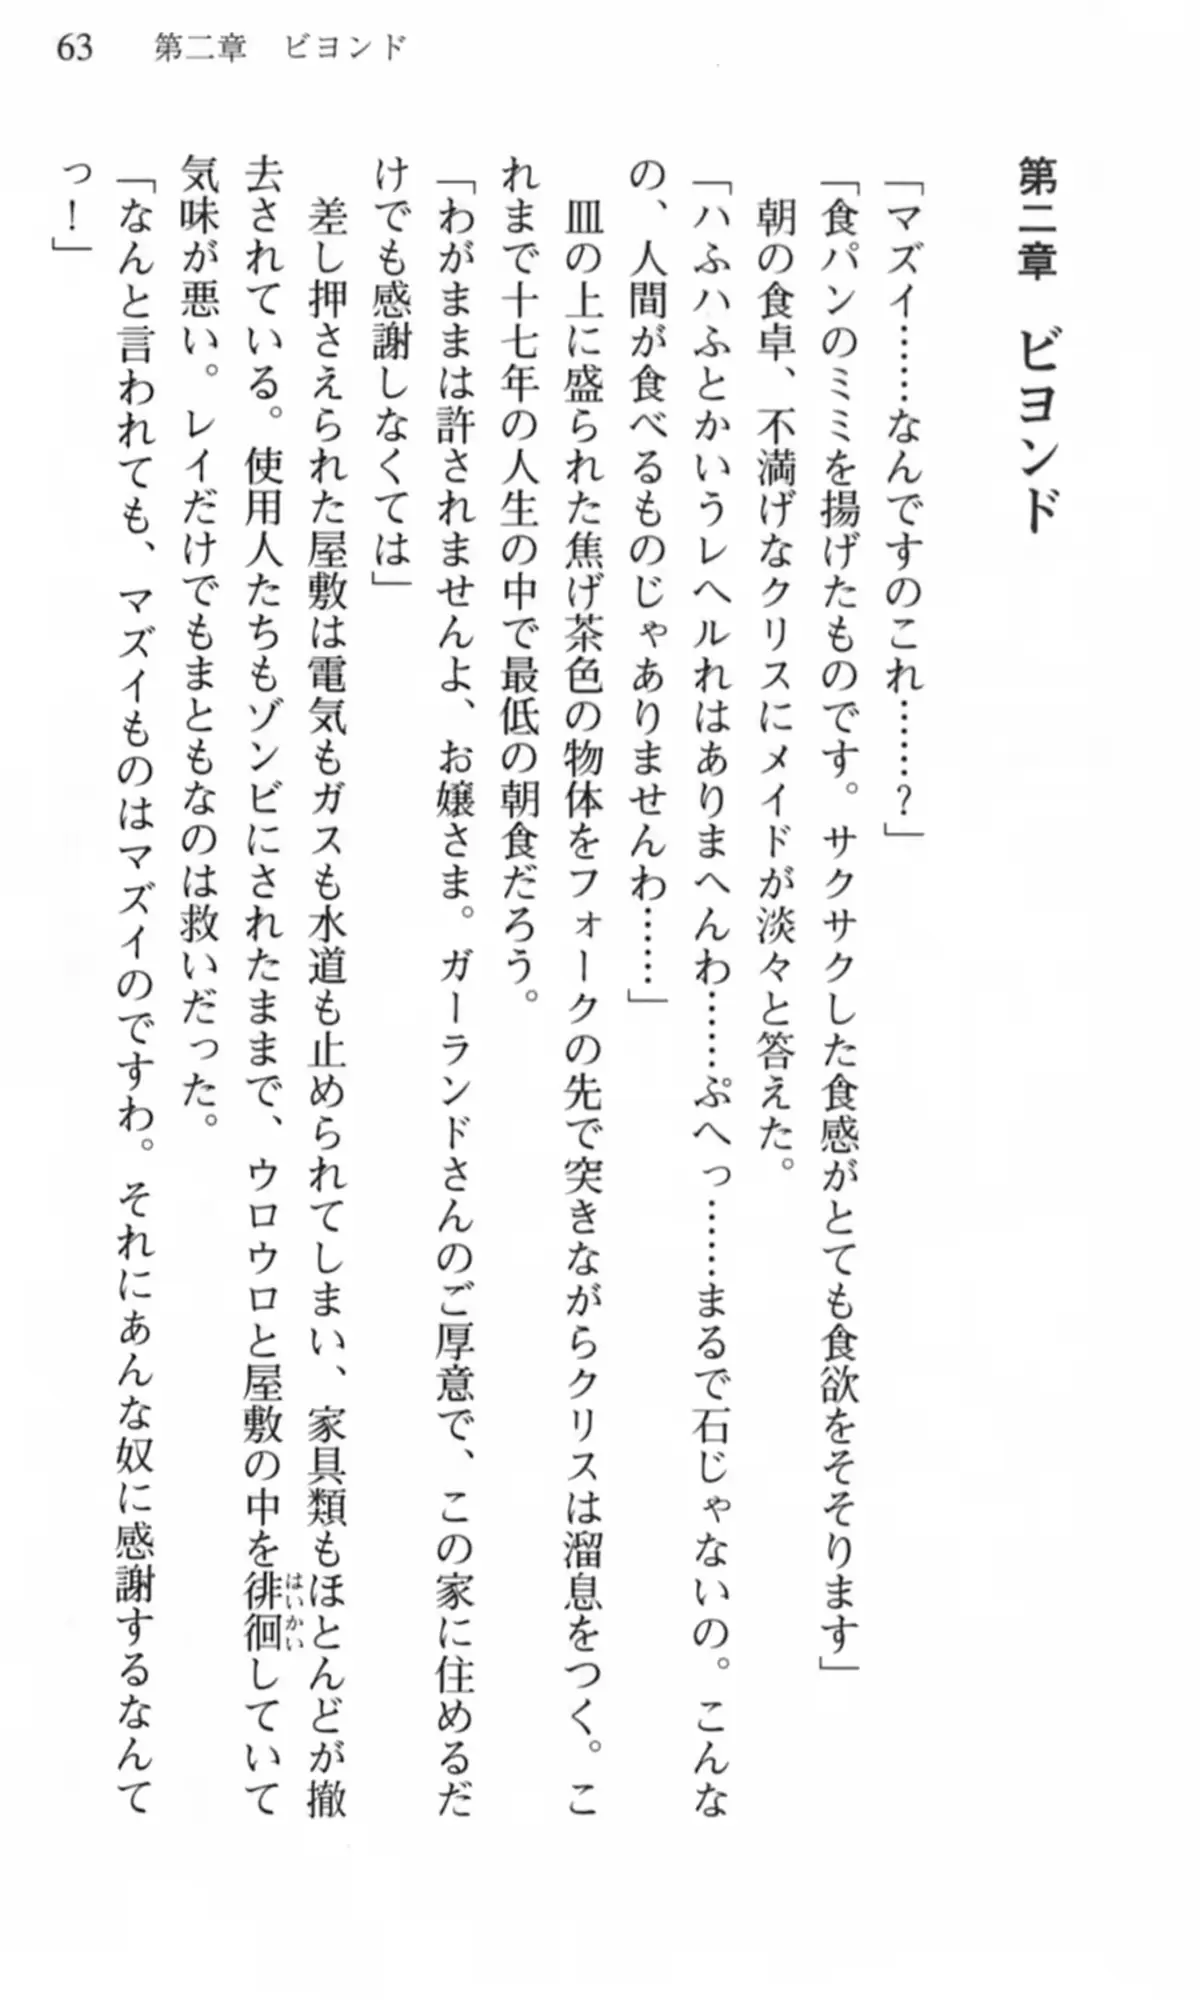 63　第二章　ビヨンド
第二章　ビヨンド
「マズイ……なんですのこれ……？」
「食パンのミミを揚げたものです。サクサクした食感がとても食欲をそそります」
　朝の食卓、不満げなクリスにメイドが淡々と答えた。
「ハふハふとかいうレヘルれはありまへんわ……ぷへっ……まるで石じゃないの。こんな
の、人間が食べるものじゃありませんわ……」
　皿の上に盛られた焦げ茶色の物体をフォークの先で突きながらクリスは溜息をつく。こ
れまで十七年の人生の中で最低の朝食だろう。
「わがままは許されませんよ、お嬢さま。ガーランドさんのご厚意で、この家に住めるだ
けでも感謝しなくては」
　差し押さえられた屋敷は電気もガスも水道も止められてしまい、家具類もほとんどが撤
去されている。使用人たちもゾンビにされたままで、ウロウロと屋敷の中を徘徊していて
はいかい
気味が悪い。レイだけでもまともなのは救いだった。
「なんと言われても、マズイものはマズイのですわ。それにあんな奴に感謝するなんて
っ！」